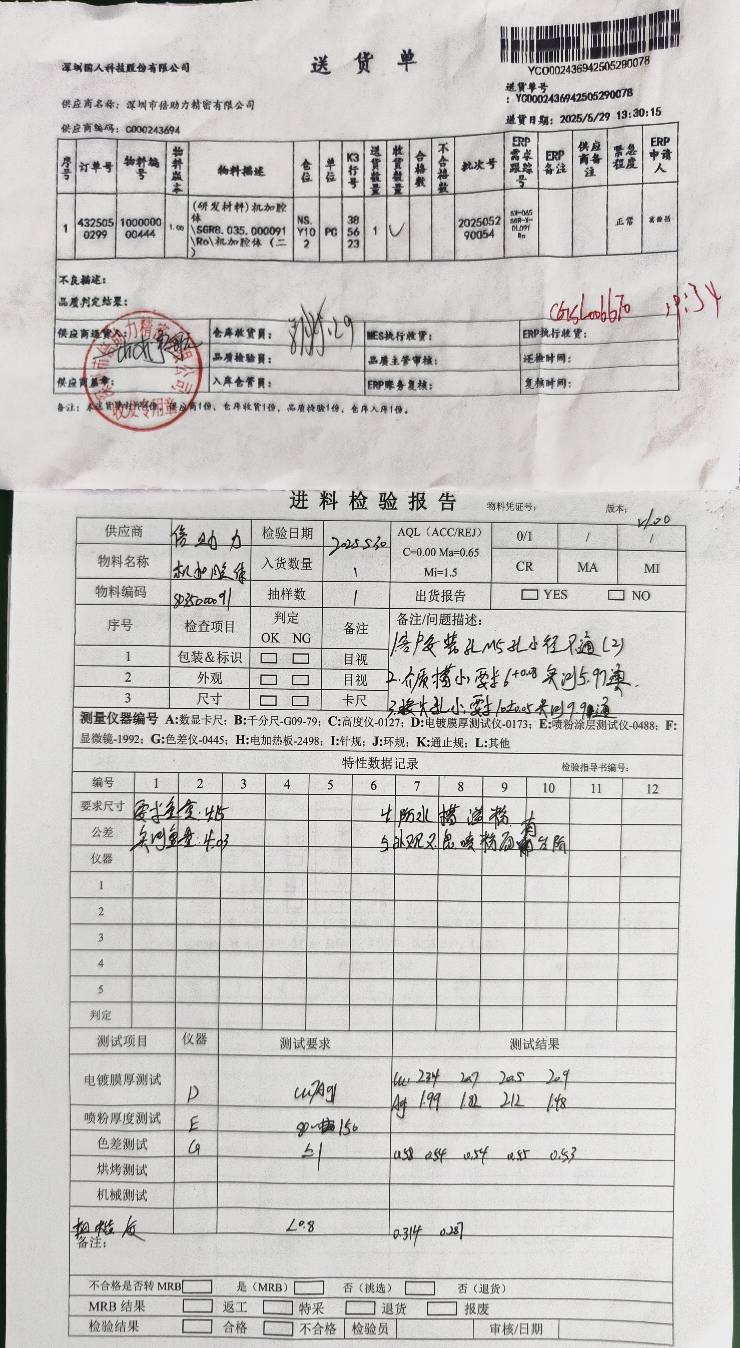 深圳国人科技股份有限公司
送货单
YC0002436942505290078
送货单号
：YC0002436942505290078
供应商名称：深圳市倍助力精密有限公司
供应商编码：C000243694
送货日期：2025/5/29 13:30:15
序号 订单号 物料编号 物料版本 物料描述 仓位 单位 K3行号 送货数量 收货数量 合格数 不合格数 批次号 ERP需求跟踪号 ERP备注 供应商备注 紧急程度 ERP申请人
1 4325050299 100000000444 1.00 (研发材料)机加腔体\SGR8.035.000091\Ro\机加腔体（二） NS.Y102 PC 385623 1 202505290054 正常
不良描述：
品质判定结果：
供应商送货人： 仓库收货员： MES执行收货： ERP执行收货：
品质检验员： 品质主管审核： 还检时间：
供应商盖章： 入库仓管员： ERP账务复核： 复核时间：
收发专用章
进料检验报告
物料凭证号： 版本： V1.00
供应商 倍助力 检验日期 2025.5.30 AQL（ACC/REJ） 0/1 / /
C=0.00 Ma=0.65
物料名称 机加腔体 入货数量 1 Mi=1.5 CR MA MI
物料编码 8035000091 抽样数 1 出货报告 YES NO
序号 检查项目 判定 备注 备注/问题描述：
OK NG
1.客户安装孔M5孔小径不通(2)
1 包装&标识 目视
2 外观 目视
3 尺寸 卡尺
测量仪器编号 A:数显卡尺；B:千分尺-G09-79；C:高度仪-0127；D:电镀膜厚测试仪-0173；E:喷粉涂层测试仪-0488；F:
显微镜-1992；G:色差仪-0445；H:电加热板-2498；I:针规；J:环规；K:通止规；L:其他
特性数据记录 检验指导书编号：
编号 1 2 3 4 5 6 7 8 9 10 11 12
要求尺寸 要求重量:4.15 4.防水槽溢粉
公差 实测重量:4.03
仪器
1
2
3
4
5
判定
测试项目 仪器 测试要求 测试结果
电镀膜厚测试 D Cu/Ag Cu: 2.34 2.07 2.05 2.09
Ag 1.99 1.82 2.12 1.48
喷粉厚度测试 E
色差测试 G ≤1 0.58 0.54 0.54 0.55 0.53
烘烤测试
机械测试
粗糙度 <0.8 0.314 0.287
备注：
不合格是否转MRB 是（MRB） 否（挑选） 否（退货）
MRB结果 返工 特采 退货 报废
检验结果 合格 不合格 检验员 审核/日期